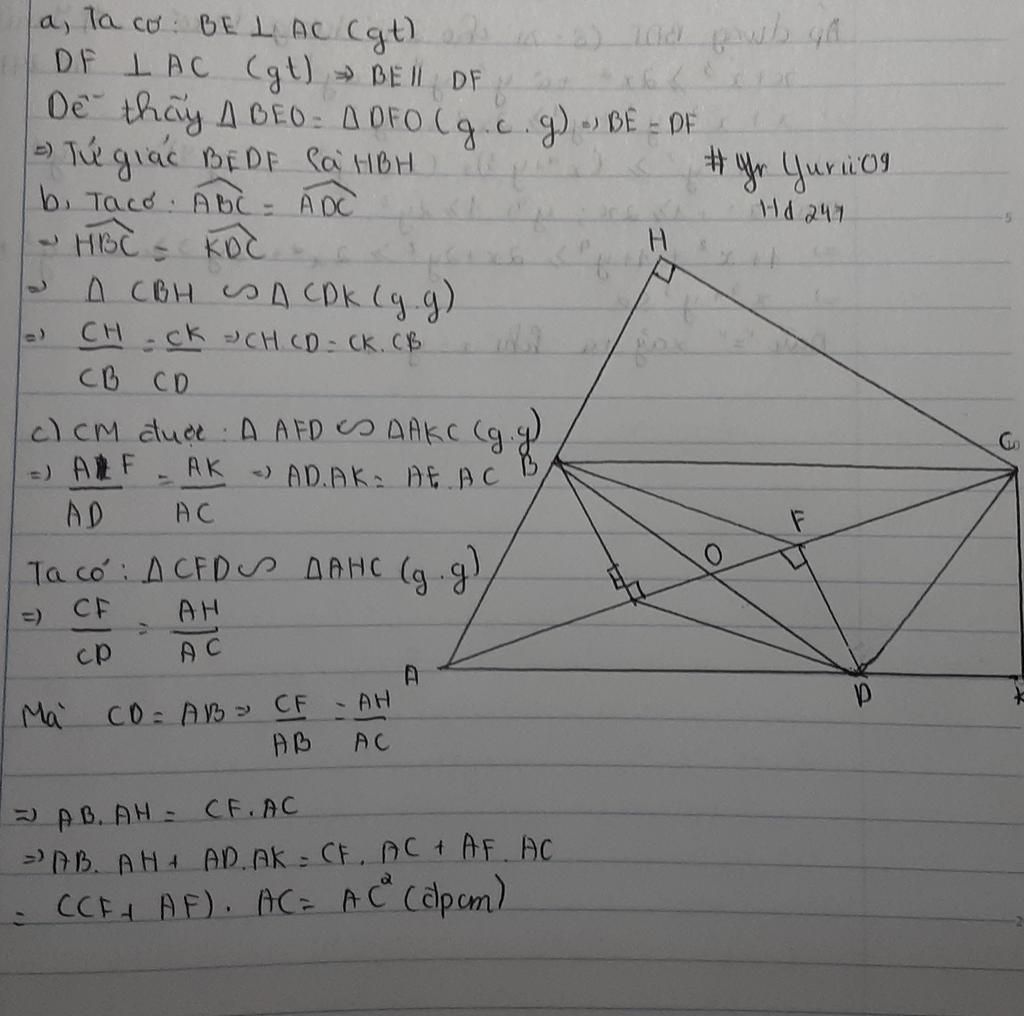 a, Ta có: BE ⊥ AC (gt)
DF ⊥ AC (gt) => BE // DF
Dễ thấy Δ BEO = Δ DFO (g.c.g) => BE = DF
=> Tứ giác BEDF là HBH
# Yr Yurii09
Hd 247
b, Ta có: \widehat{ABC} = \widehat{ADC}
=> \widehat{HBC} = \widehat{KDC}
=> Δ CBH ∽ Δ CDK (g.g)
=> CH/CB = CK/CD => CH.CD = CK.CB
c) CM được: Δ AFD ∽ Δ AKC (g.g)
=> AF/AD = AK/AC => AD.AK = AF.AC
Ta có: Δ CFD ∽ Δ AHC (g.g)
=> CF/CD = AH/AC
Mà CD = AB => CF/AB = AH/AC
=> AB.AH = CF.AC
=> AB.AH + AD.AK = CF.AC + AF.AC
= (CF + AF).AC = AC² (đpcm)
H
B
C
F
O
E
A
D
K